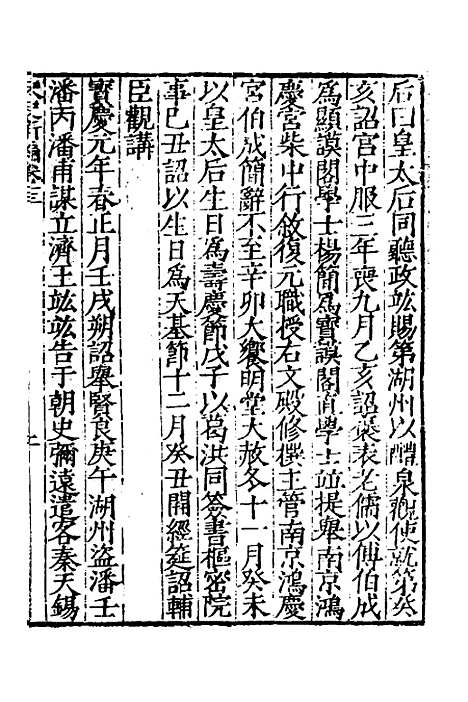 后曰皇太后同聽政竑賜第湖州以醴泉觀使就第癸
亥詔宮中服三年喪九月乙亥詔褒表老儒以傅伯成
爲顯謨閣學士楊簡爲寶謨閣直學士並提舉南京鴻
慶宮柴中行敘復元職授右文殿修撰主管南京鴻慶
宮伯成簡辭不至辛卯大饗明堂大赦冬十一月癸未
以皇太后生日爲壽慶節戊子以葛洪同簽書樞密院
事己丑詔以生日爲天基節十二月癸丑開經筵詔輔
臣觀講
寶慶元年春正月壬戌朔詔舉賢良庚午湖州盜潘壬
潘丙潘甫謀立濟王竑竑告于朝史彌遠遣客秦天錫
宋史新編卷十三